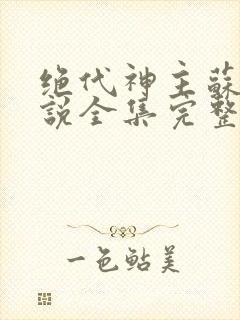 绝代神主蘇
説全集完整
一色鲇美